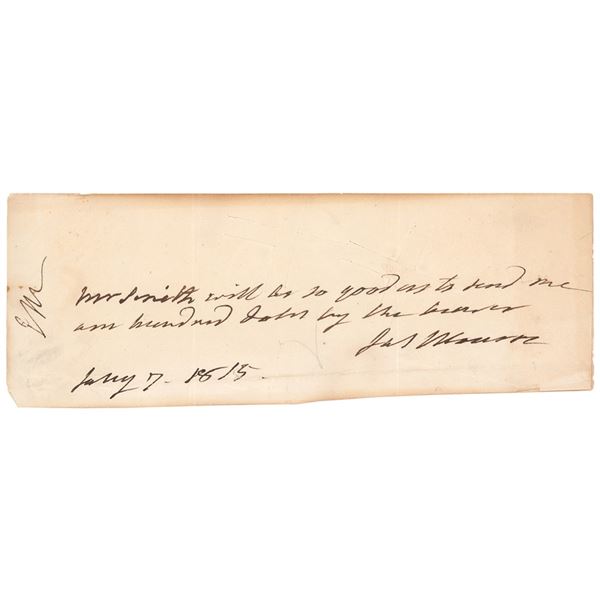 Mr Smith will be so good as to send me
one hundred dolrs by the bearer
Jas Monroe
Jany 7. 1815.